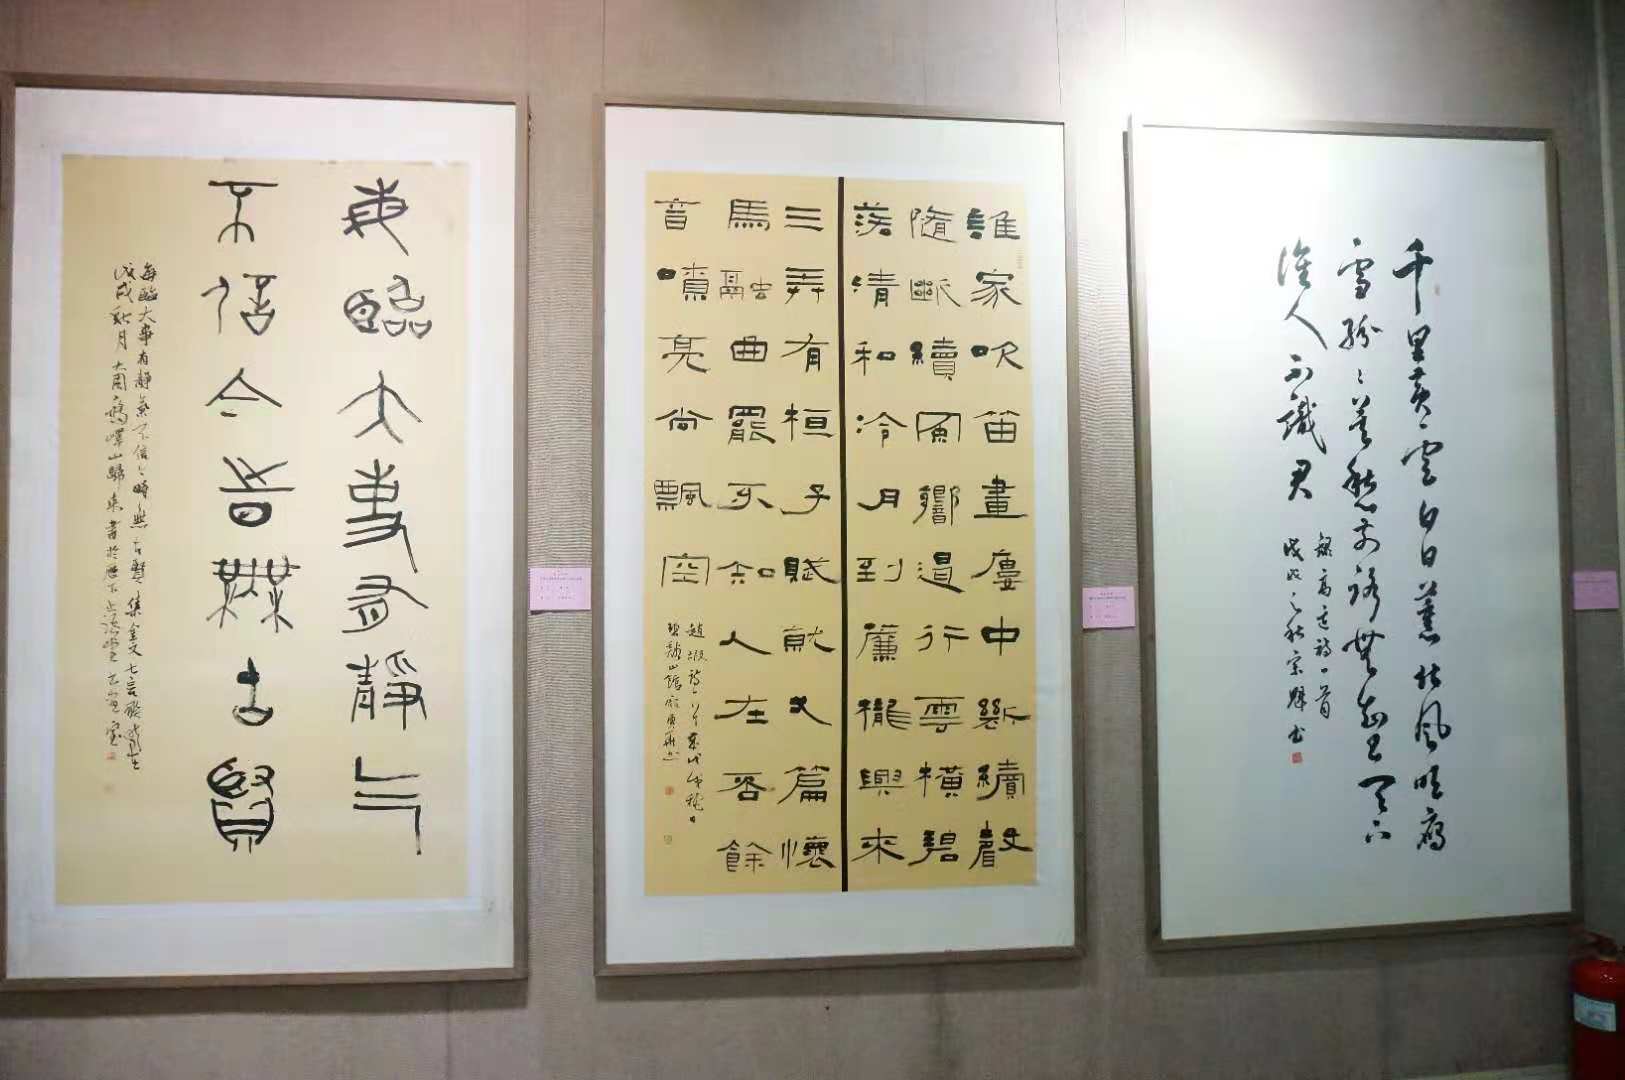 每臨大事有靜气
不信今旹無古賢
每臨大事有靜氣不信今時無古賢集金文七言聯
戊戌秋月 嶧山歸來書於歷下
誰家吹笛畫廔中斷續聲
隨斷續風響遏行雲橫碧
落清和冷月到簾櫳興來
三弄有桓子賦就篇懷
馬融曲罷不知人在否餘
音嘹亮尚飄空
趙嘏詩一首
千里黄雲白日薰北风吹雁
雪紛紛莫愁前路無知己天下
誰人不識君
錄高适詩一首
戊戌之秋宗輝書